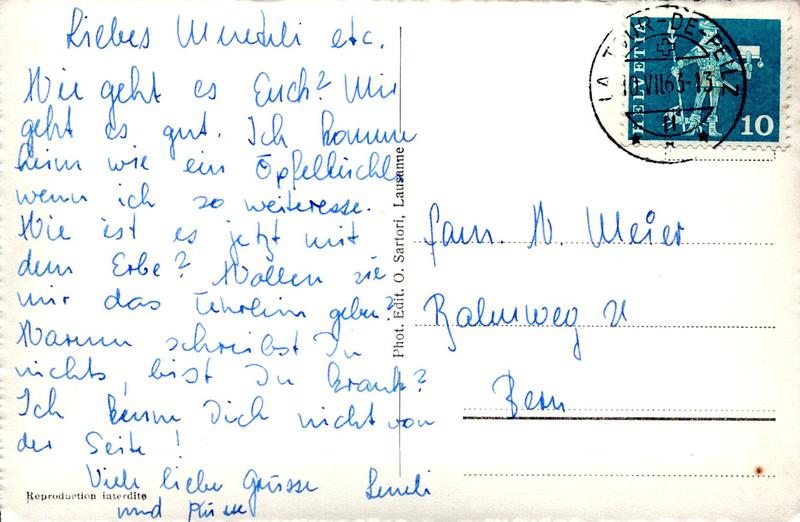 Liebes Muneli etc.
Wie geht es Euch? Mir
geht es gut. Ich komme
heim wie ein Öpfelchüechli
wenn ich so weiteresse.
Wie ist es jetzt mit
dem Erbe? Wollen sie
mir das geben?
Warum schreibst Du
nichts, bist Du krank?
Ich kenne Dich nicht von
der Seite!
Viele liebe Grüsse
und Küsse
Reproduction interdite
Phot. Edit. O. Sartori, Lausanne
LA TOUR-DE-PEILZ
10.VII.63-13
HELVETIA
10
Fam. W. Meier
Balmweg
Bern